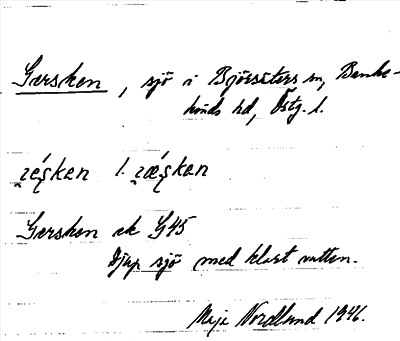 Gersken, sjö i Björsäters sn, Banke-
kinds hd, Östg. l.
Gersken ek G45
Djup sjö med klart vatten.
Maja Nordlund 1946.